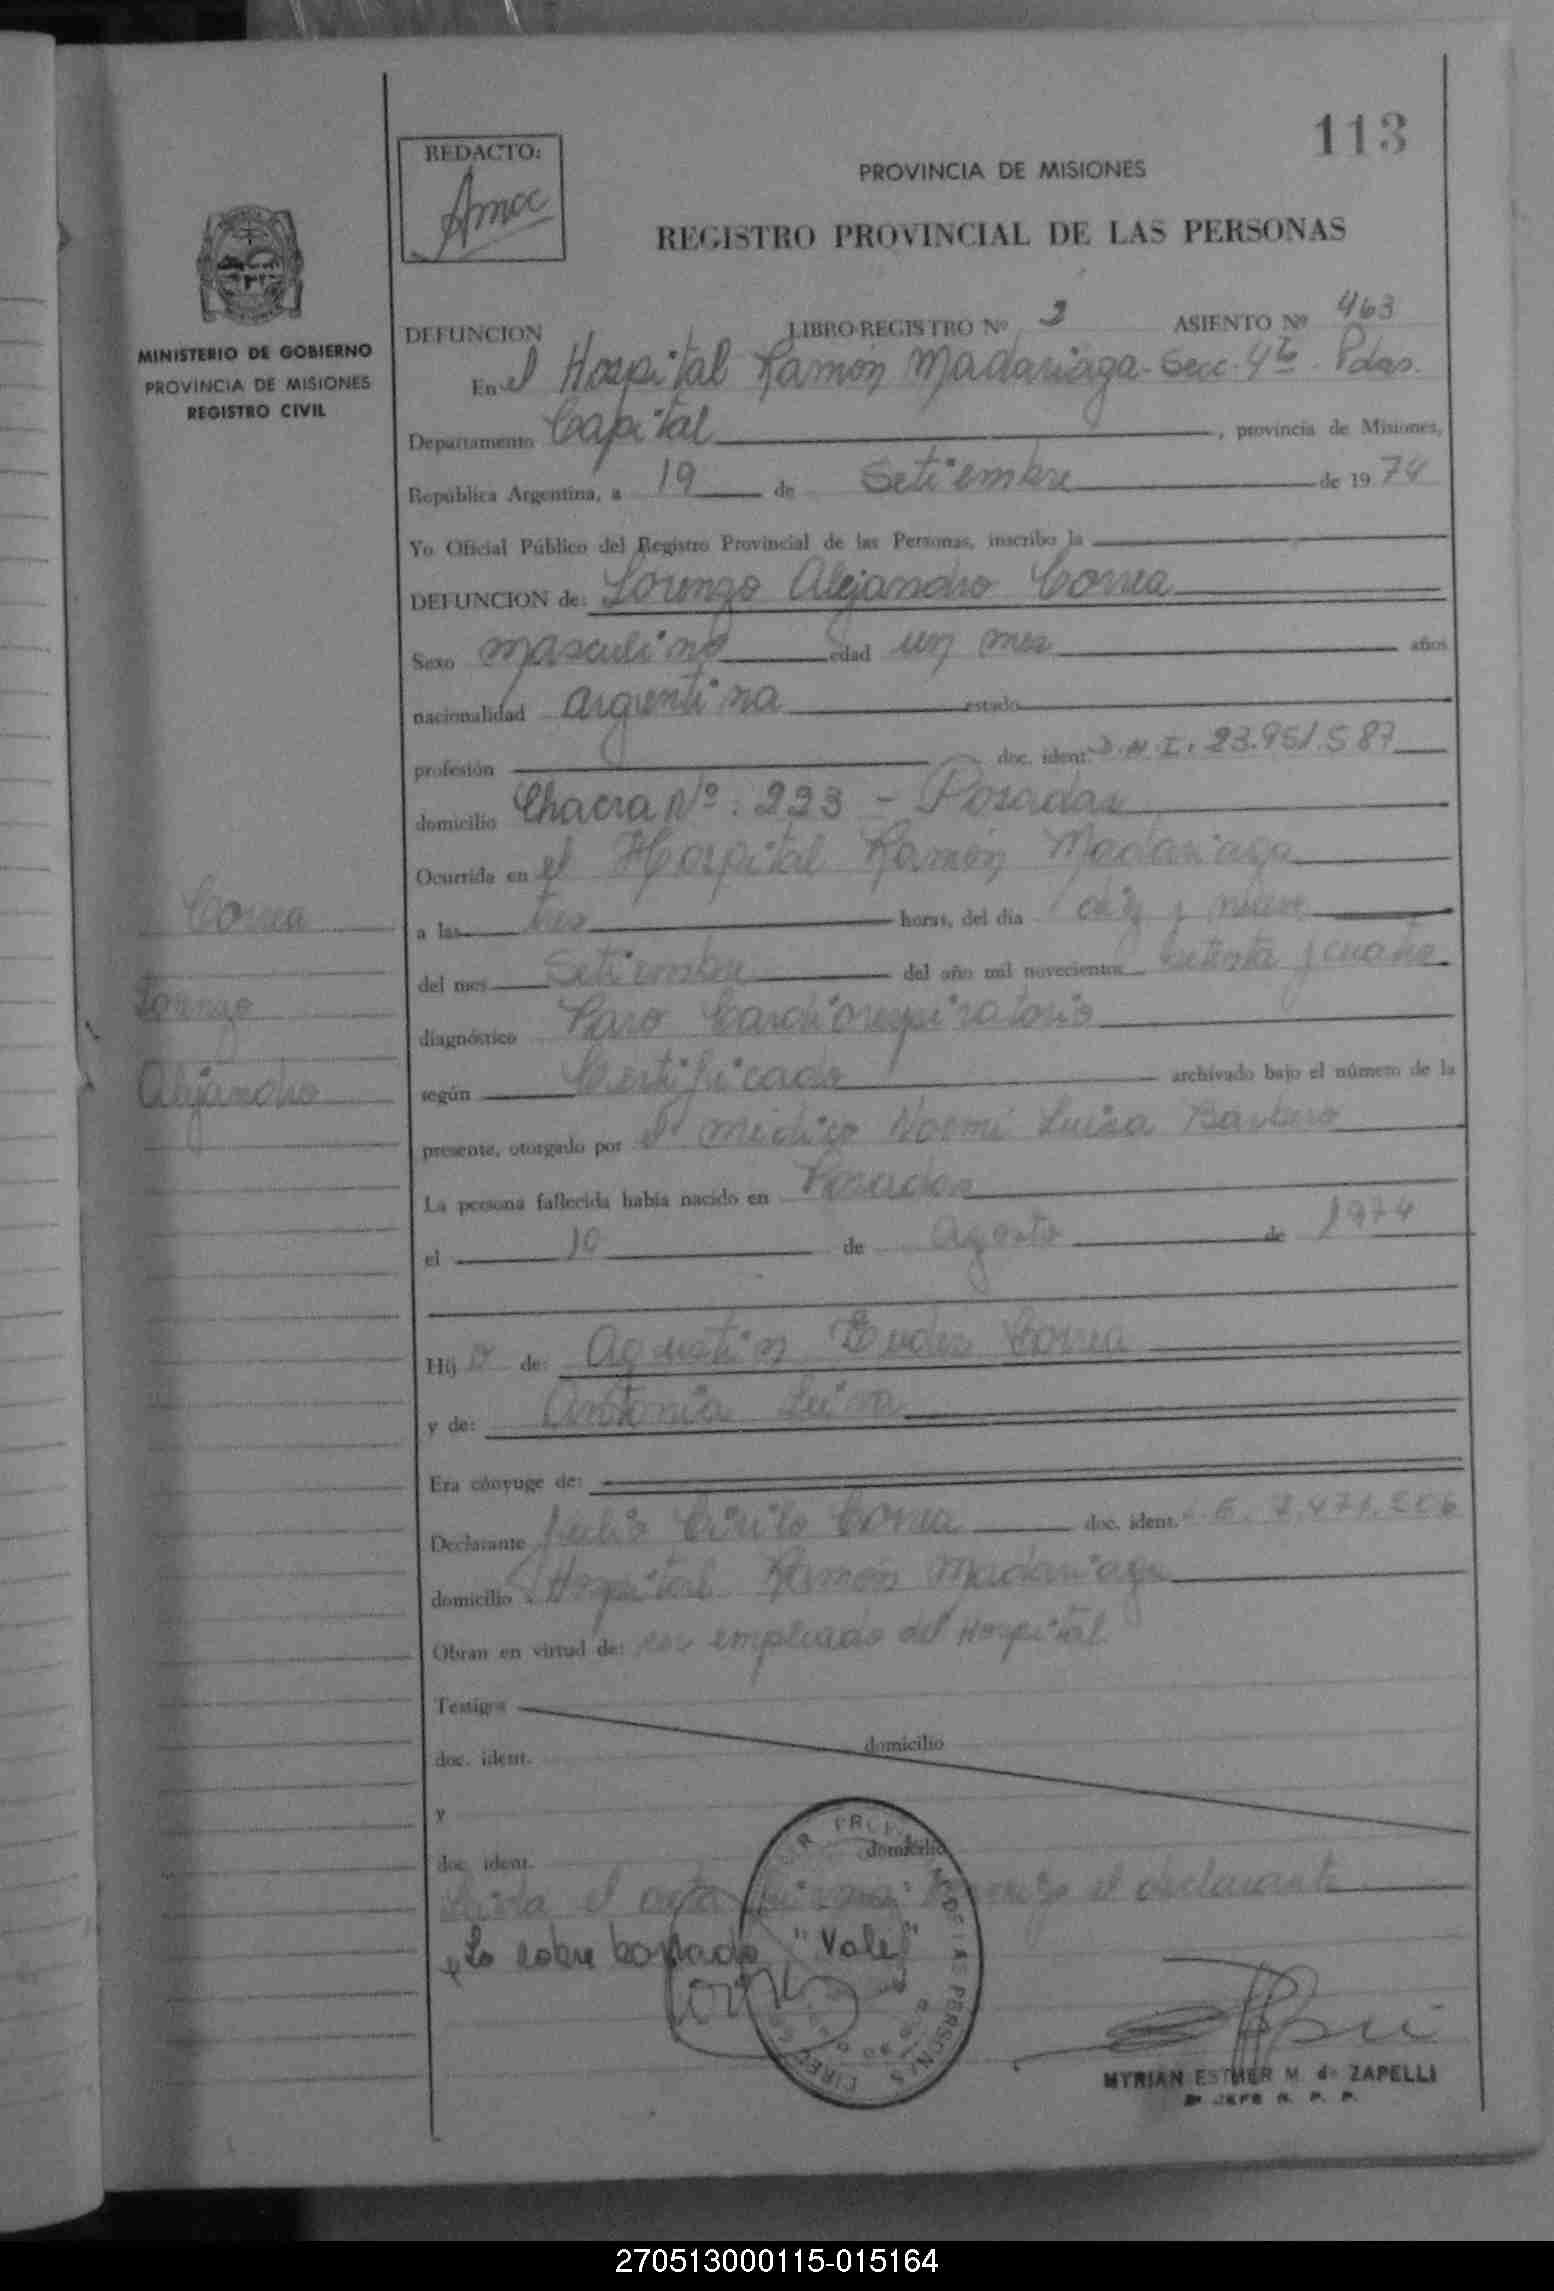 113
REDACTO:
Amcc
PROVINCIA DE MISIONES
REGISTRO PROVINCIAL DE LAS PERSONAS
MINISTERIO DE GOBIERNO
PROVINCIA DE MISIONES
REGISTRO CIVIL
DEFUNCION LIBRO-REGISTRO Nº 3 ASIENTO Nº 463
En el Hospital Ramón Madariaga - Secc. 4ta. Pdas.
Departamento Capital, provincia de Misiones,
República Argentina, a 19 de Setiembre de 1974
Yo Oficial Público del Registro Provincial de las Personas, inscribo la
DEFUNCION de: Lorenzo Alejandro Correa
Sexo masculino edad un mes años
nacionalidad argentina estado
profesión doc. ident. D.N.I. 23.951.587
domicilio Chacra Nº: 223 - Posadas
Ocurrida en el Hospital Ramón Madariaga
a las tres horas, del día diez y nueve
del mes Setiembre del año mil novecientos setenta y cuatro
diagnóstico Paro Cardiorespiratorio
según Certificado archivado bajo el número de la
presente, otorgado por el médico Noemi Luisa Barbaro
La persona fallecida había nacido en Posadas
el 10 de Agosto de 1974
Hijo de: Agustin Eudes Correa
y de: Antonia Leiva
Era cónyuge de:
Declarante Julio Cirilo Correa doc. ident. L.E. 7.471.506
domicilio Hospital Ramón Madariaga
Obran en virtud de: ser empleado del Hospital
Testigos
doc. ident. domicilio
y
doc. ident. domicilio
Leida el acta conmigo el declarante
Lo sobre borrado "Vale"
Correa
Lorenzo
Alejandro
MYRIAN ESTHER M. de ZAPELLI
2º JEFE R. P. P.
270513000115-015164